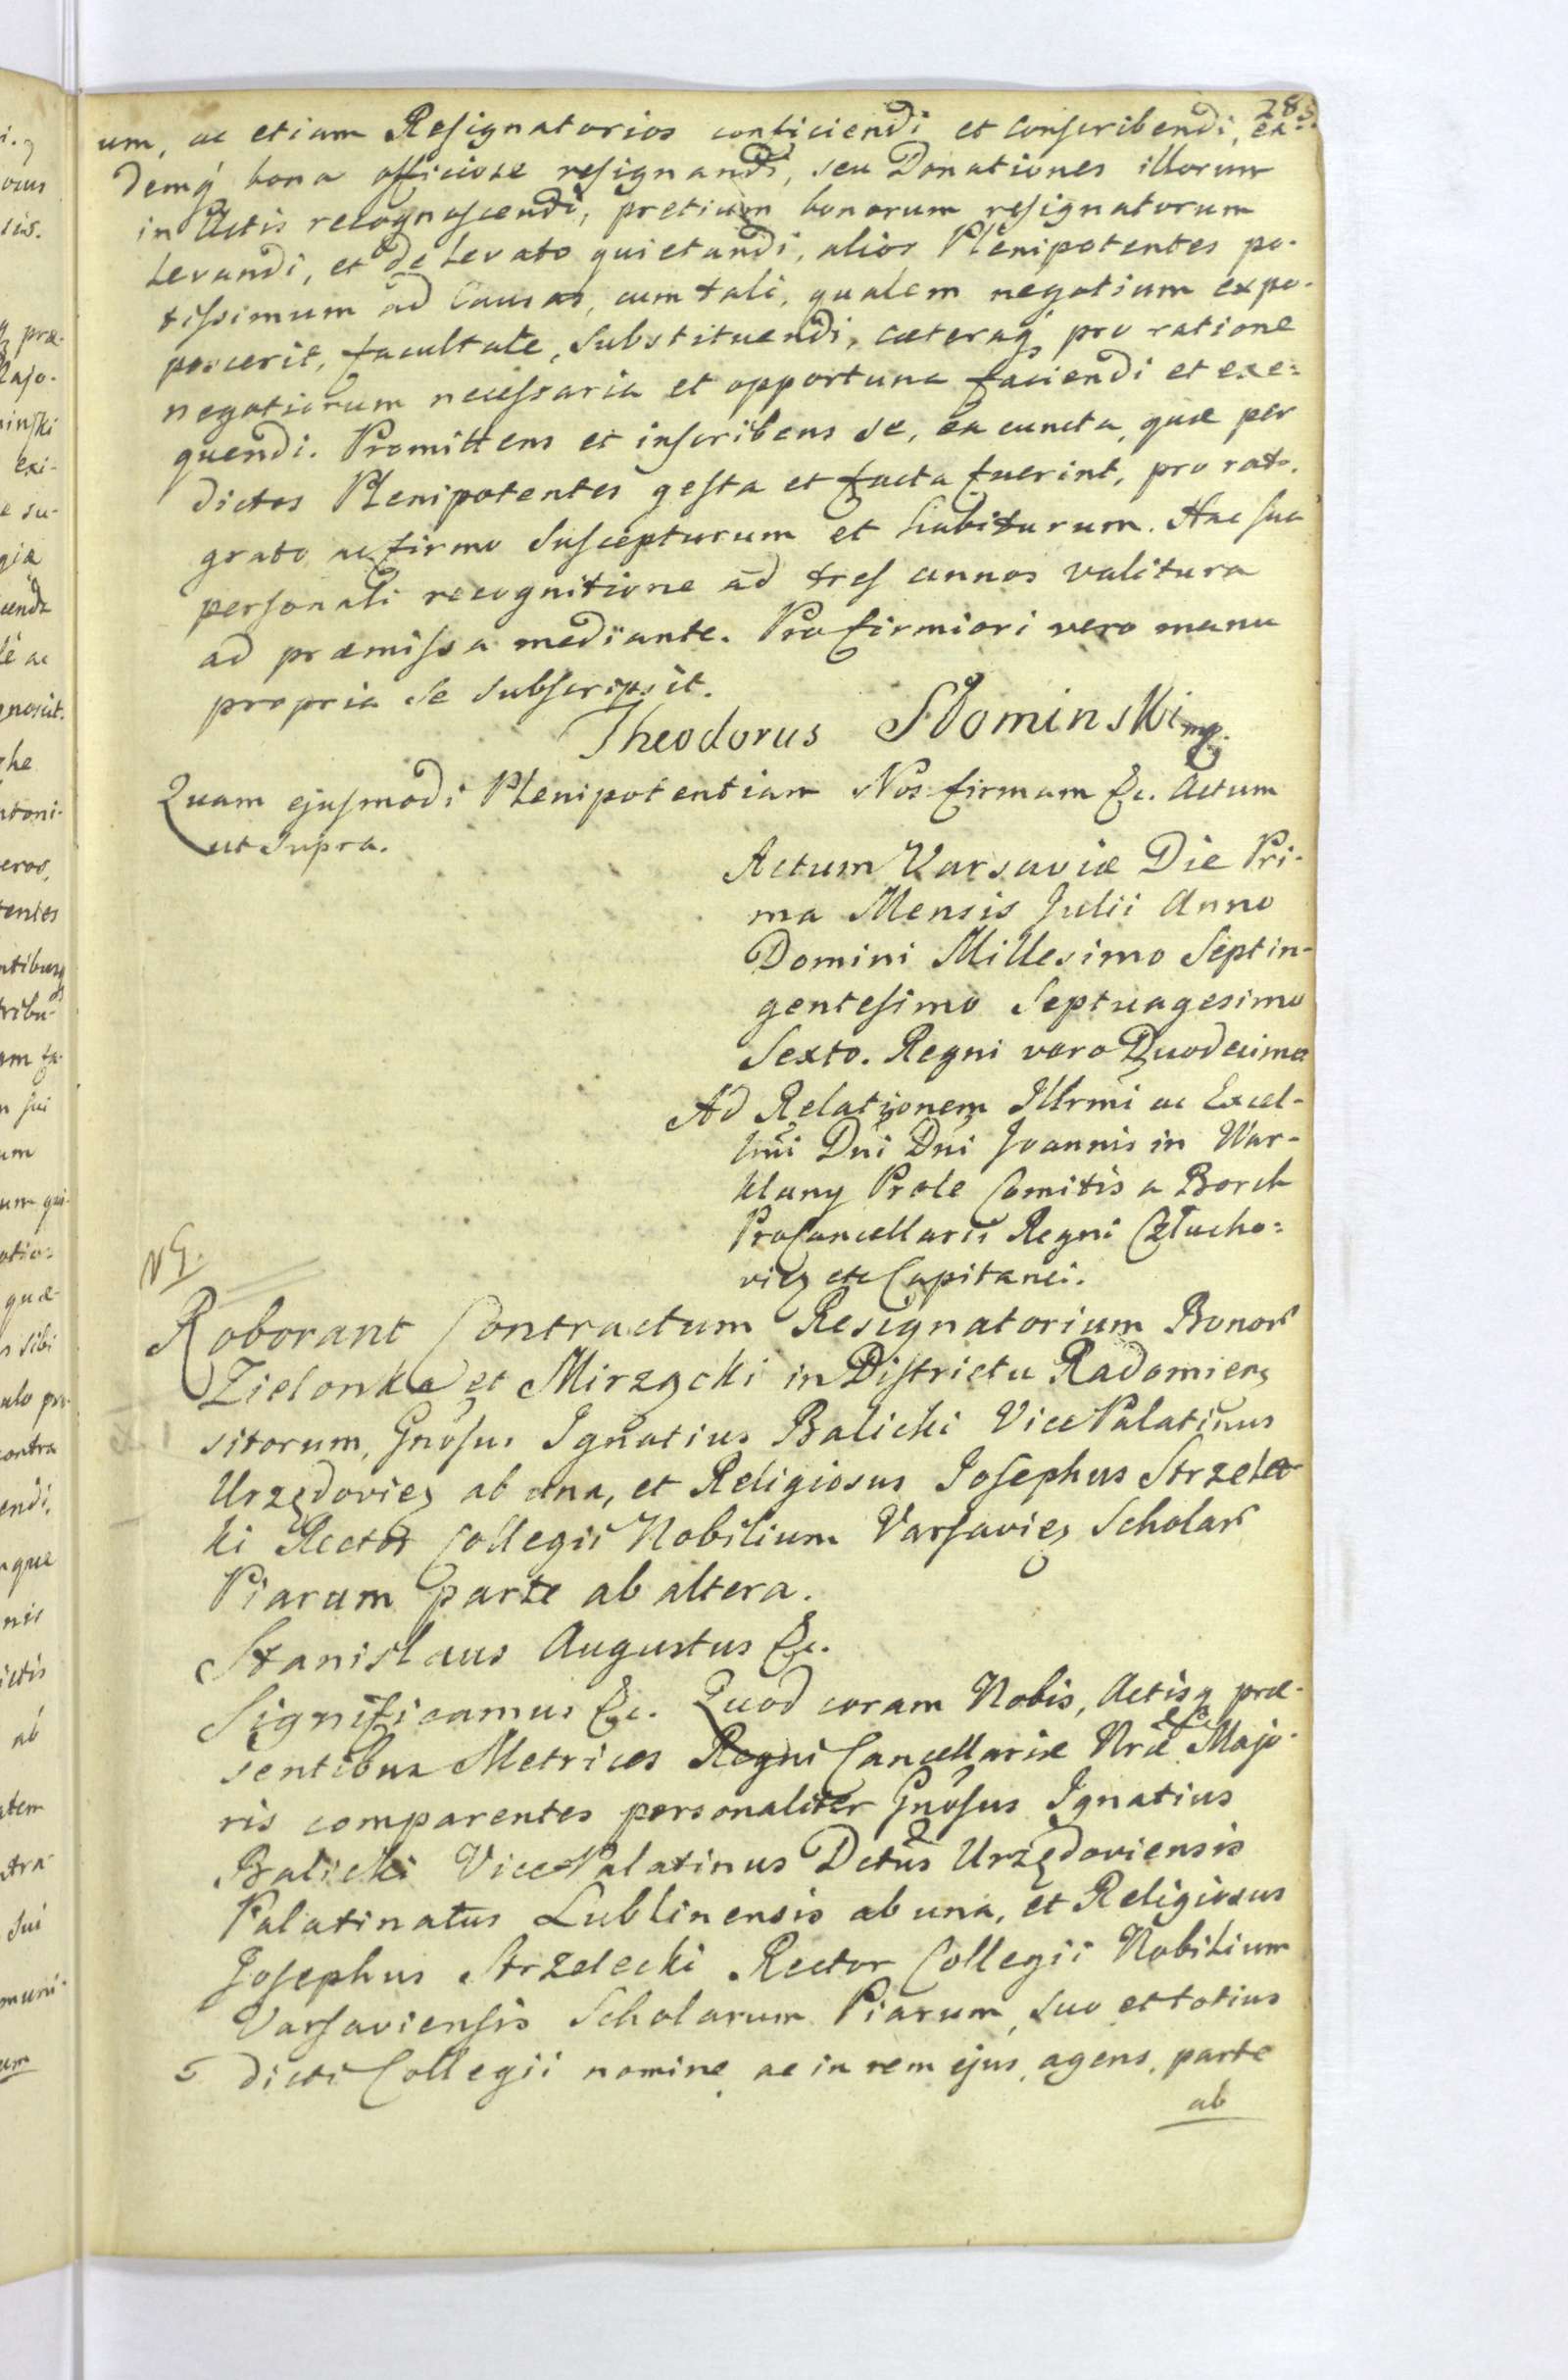 285.
um, ac etiam Resignatorios conficiendi et conscribendi, ea-
demq, bona officiose resignandi, seu Donationes illorum
in Actis recognoscendi, pretium bonorum resignatorum
Levandi, et de Levato quietandi, alios Plenipotentes po-
tissimum ad Causas, cum tali, qualem negotium expo-
poscerit, facultate, substituendi, caeteraq, pro ratione
negotiorum necessaria et opportuna faciendi et exe-
quendi. Promittens et inscribens se, ea cuncta, quæ per
dictos Plenipotentes gesta et facta fuerint, pro rato,
grato ac firmo suscepturum et habiturum. Hac sua
personali recognitione ad tres annos valitura
ad præmissa mediante. Pro firmiori vero manu
propria se subscripsit.
Theodorus Słominski mp.
Quam ejusmodi Plenipotentiam Nos firmam &c. Actum
ut supra.
Actum Varsaviæ Die Pri-
ma Mensis Julii Anno
Domini Millesimo Septin-
gentesimo Septuagesimo
Sexto. Regni vero Duodecimo
Ad Relationem Illrmi ac Excel-
lmi Dni Dni Joannis in War-
klany Prole Comitis a Borch
ProCancellarii Regni Człucho-
vien etc Capitanei.
Roborant Contractum Resignatorium Bonor
Zielonka et Mirzącki in Districtu Radomien
sitorum, Gnosus Ignatius Balicki Vice Palatinus
Urzędovien ab una, et Religiosus Josephus Strzelec
ki Rector Collegii Nobilium Varsavien Scholar
Piarum parte ab altera.
Stanislaus Augustus &c.
Significamus &c. Quod coram Nobis, Actisq præ-
sentibus Metrices Regni Cancellariæ Nræ Majo-
ris comparentes personaliter Gnosus Ignatius
Balicki Vice Palatinus Dctus Urzędoviensis
Palatinatus Lublinensis ab una, et Religiosus
Josephus Strzelecki Rector Collegii Nobilium
Varsaviensis Scholarum Piarum, suo et totius
dicti Collegii nomine, ac in rem ejus, agens, parte
ab